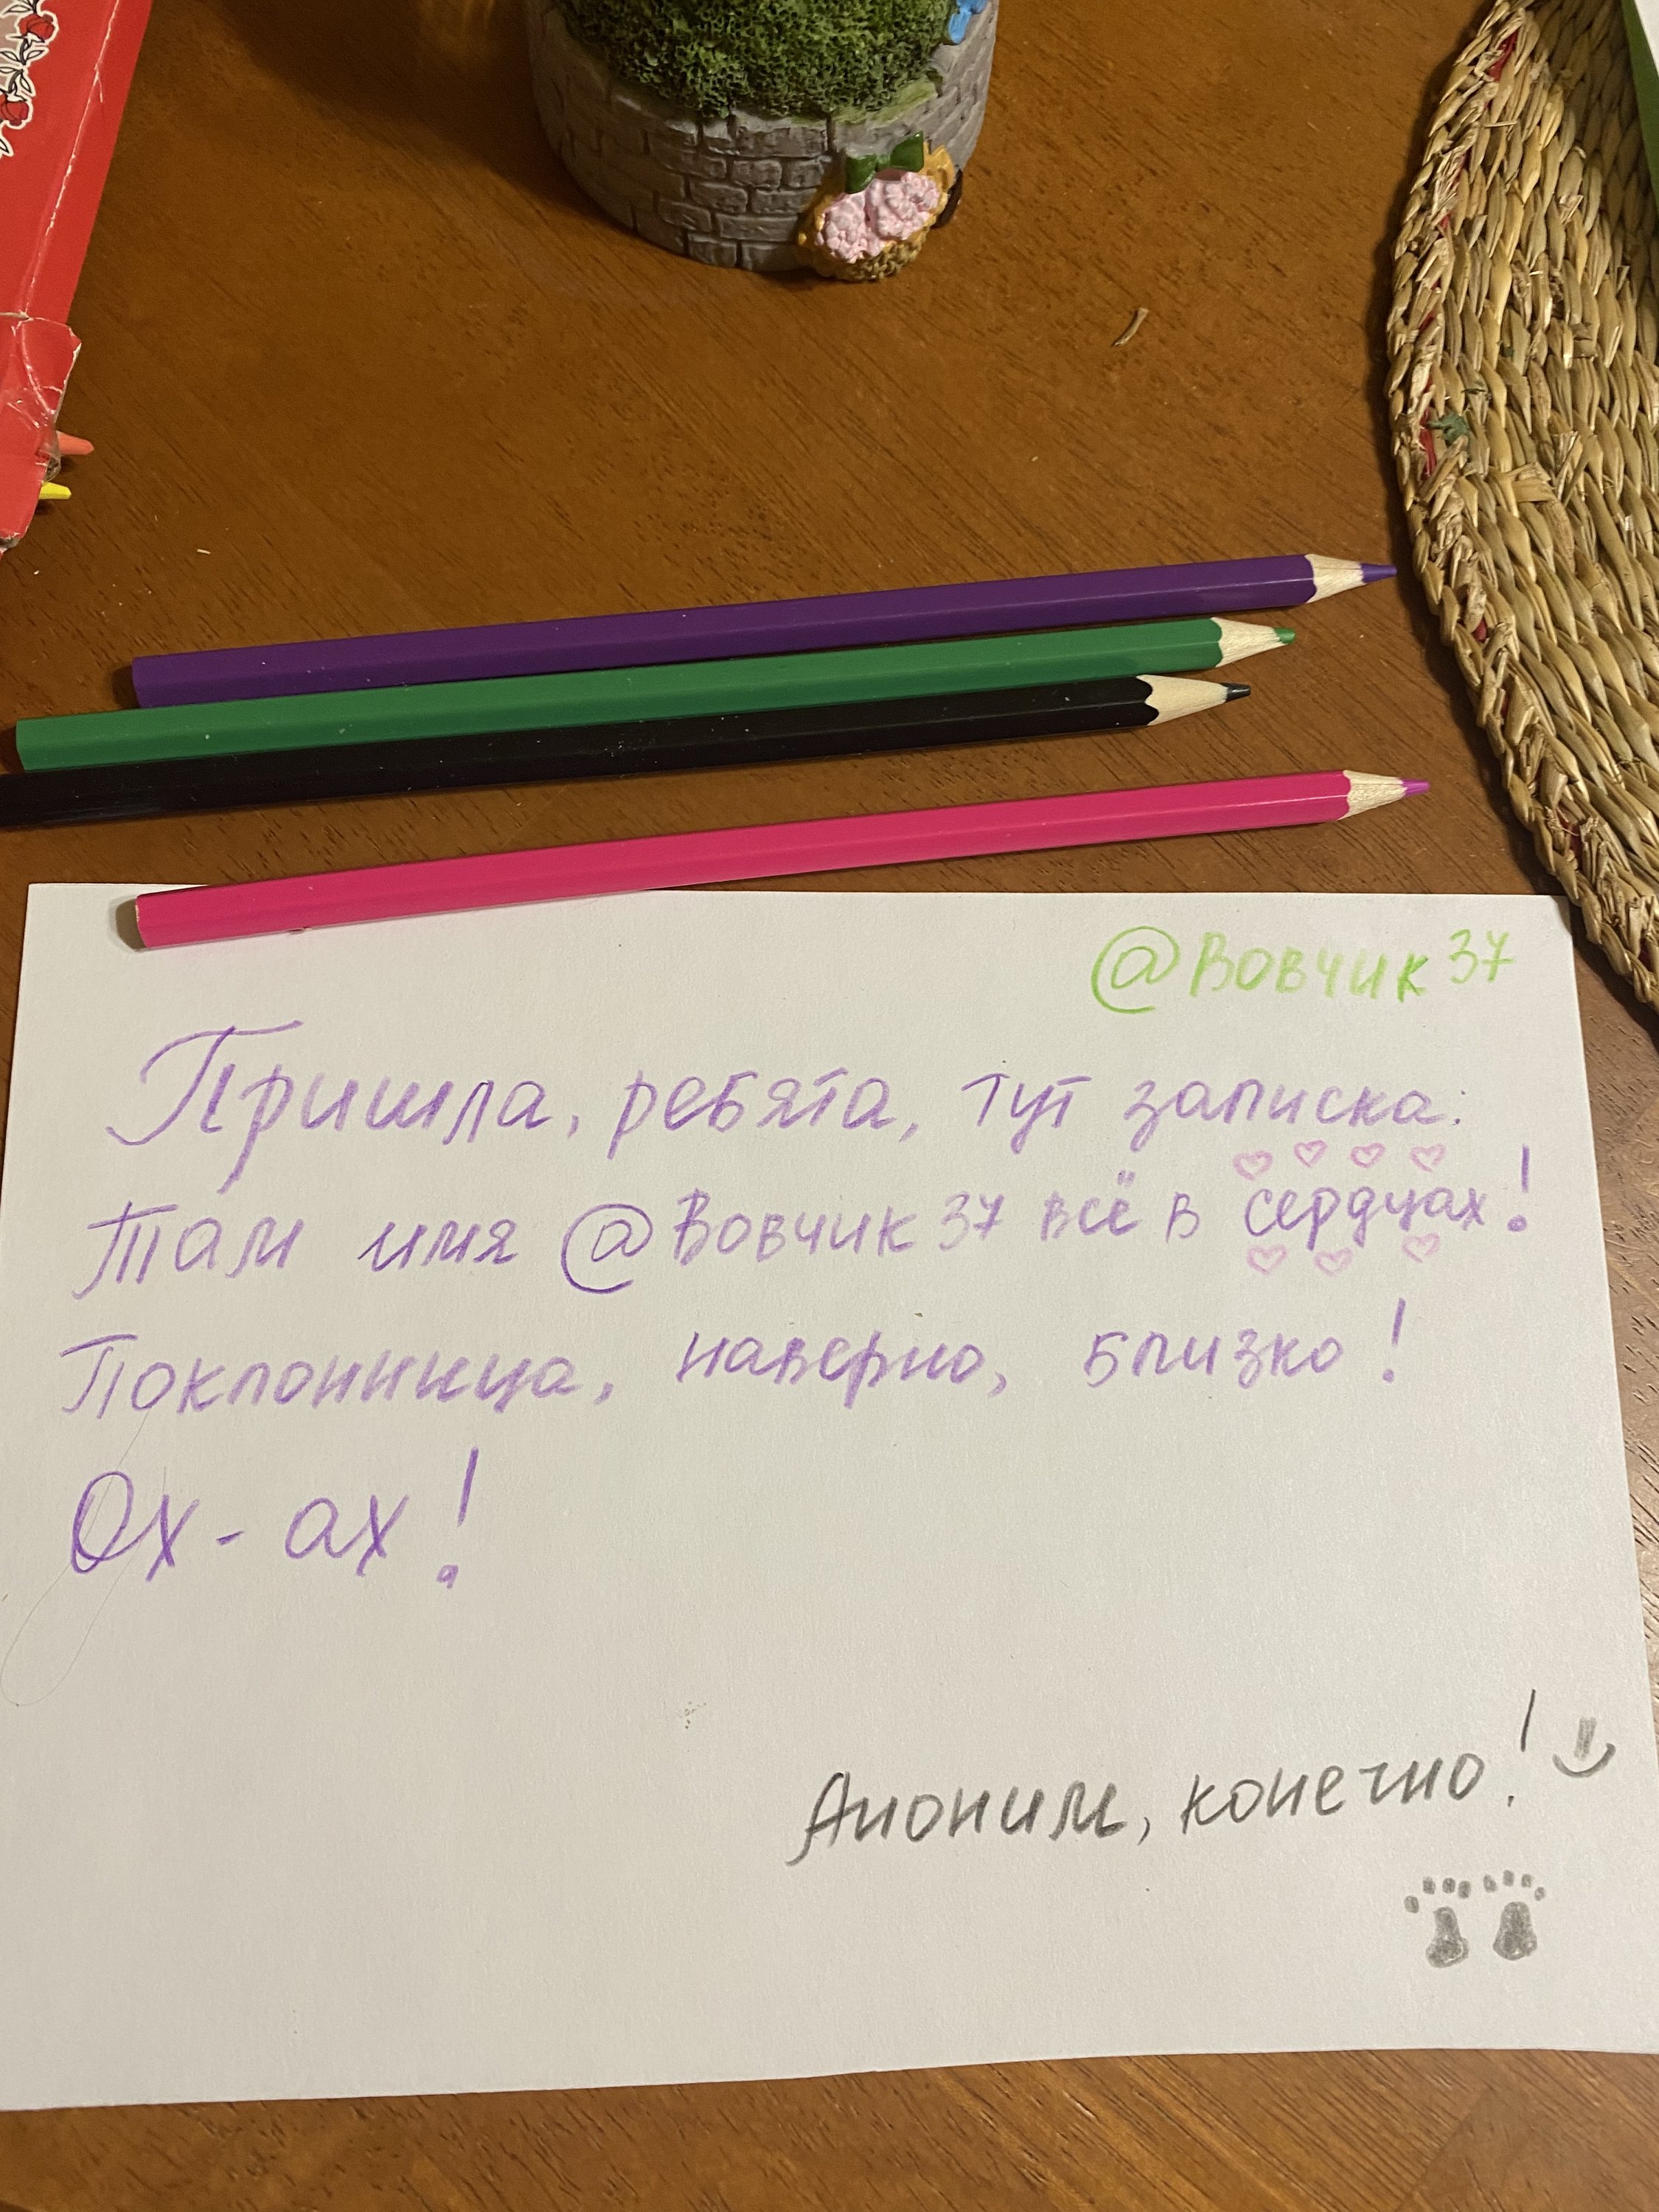 @Вовчик 37
Пришла, ребята, тут записка:
Там имя @Вовчик 37 всё в сердцах!
Поклонница, наверно, близко!
Ох - ах!
Аноним, конечно!